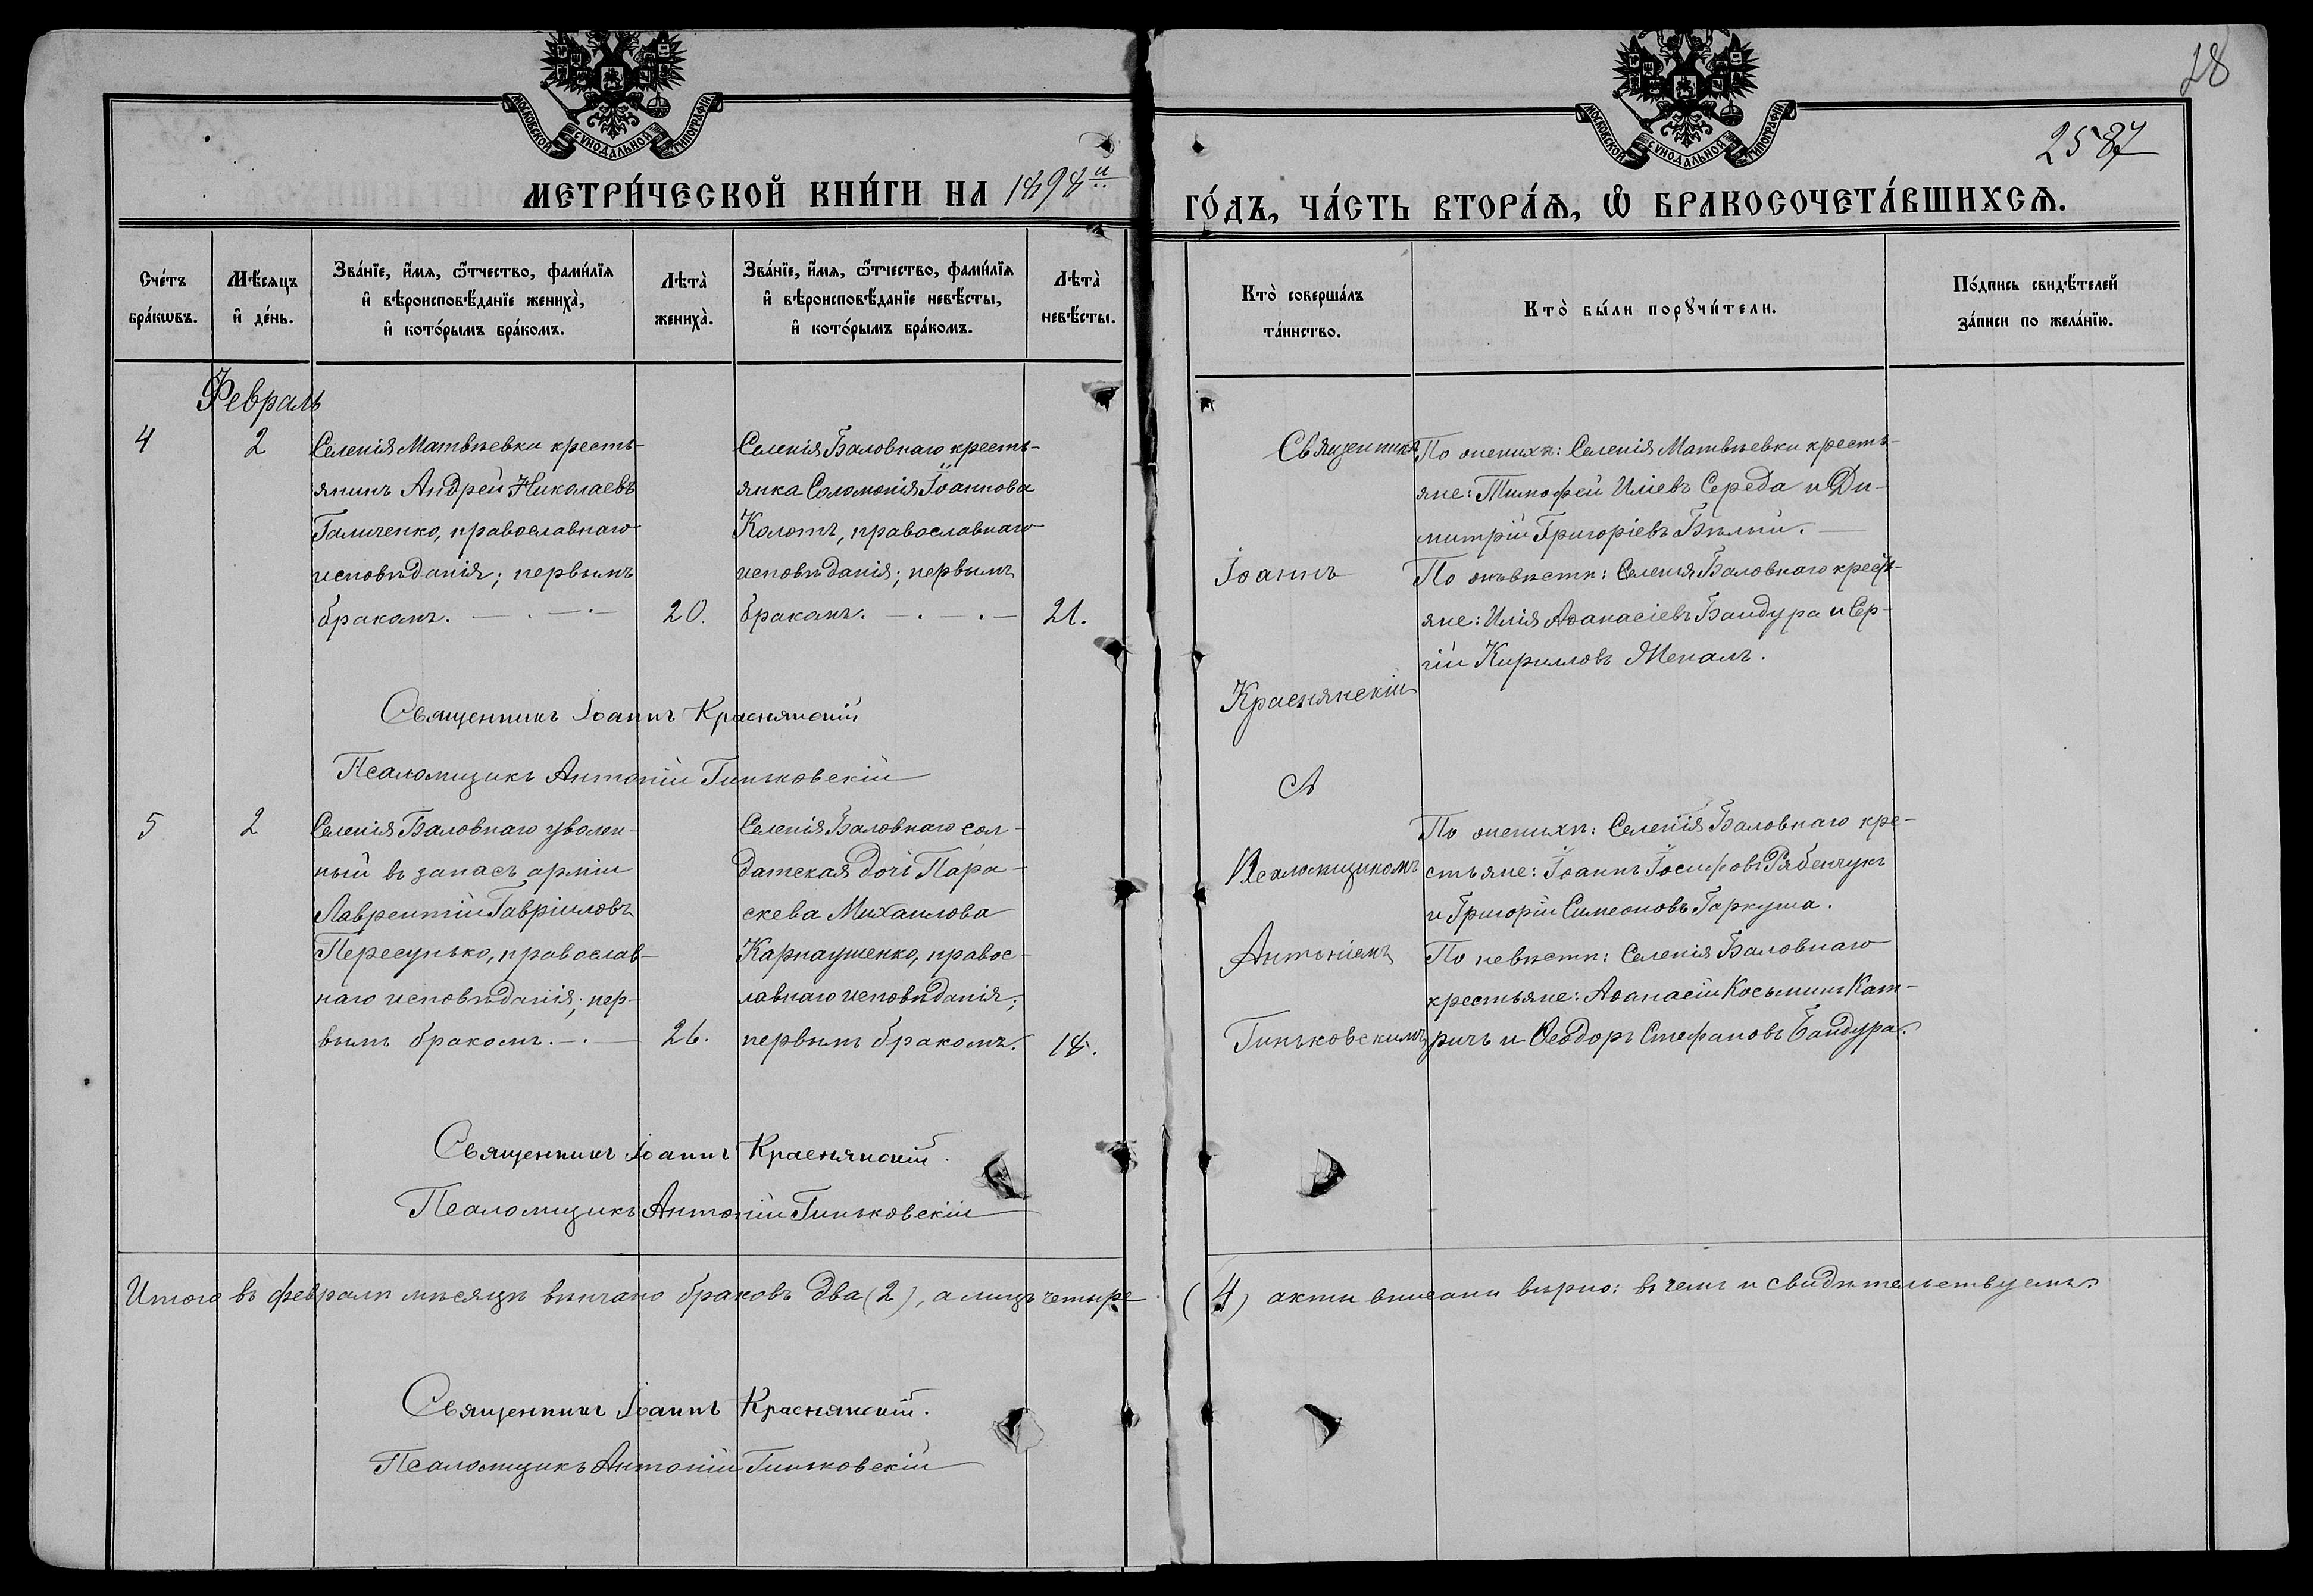 28
2587
МОСКОВСКОЙ СѴНОДАЛЬНОЙ ТИПОГРАФІИ
МОСКОВСКОЙ СѴНОДАЛЬНОЙ ТИПОГРАФІИ
МЕТРИ́ЧЕСКОЙ КНИ́ГИ НА 1898й
ГО́ДЪ, ЧА́СТЬ ВТОРА́Ѧ, Ѽ БРАКОСОЧЕТА́ВШИХСѦ.
Сче́тъ
бра́кѡвъ.
Мѣ́сяцъ
и҆ де́нь.
Зва́нїе, и҆́мѧ, ѻ҆́тчество, фами́лїѧ
и҆ вѣроисповѣ́данїе жениха̀,
и҆ кото́рымъ бра́комъ.
Лѣта̀
жениха̀.
Зва́нїе, и҆́мѧ, ѻ҆́тчество, фами́лїѧ
и҆ вѣроисповѣ́данїе невѣ́сты,
и҆ кото́рымъ бра́комъ.
Лѣта̀
невѣ́сты.
Кто̀ соверша́лъ
та́инство.
Кто̀ бы́ли порꙋчи́тели.
По́дпись свидѣ́телей
за́писи по жела́нїю.
Февраль
4
2
Селенія Матвѣевки кресть-
янинъ Андрей Николаевъ
Галиченко, православнаго
исповѣданія; первымъ
бракомъ.
20.
Селенія Баловнаго кресть-
янка Соломонія Іоаннова
Колотъ, православнаго
исповѣданія; первымъ
бракомъ.
21.
Священникъ
Іоаннъ
Краснянскій
По женихѣ: Селенія Матвѣевки кресть-
яне: Тимофей Иліевъ Середа и Ди-
митрій Григоріевъ Бѣлый.
По невѣстѣ: Селенія Баловнаго кресть-
яне: Илія Аѳанасіевъ Бандура и Сер-
гій Кирилловъ
Священникъ Іоаннъ Краснянскій
Псаломщикъ Антоній Гиньковскій
5
2
Селенія Баловнаго уволен-
ный въ запасъ арміи
Лаврентій Гавріиловъ
Пересунько, православ-
наго исповѣданія; пер-
вымъ бракомъ.
26.
Селенія Баловнаго сол-
датская дочь Пара-
скева Михаилова
Карпаушенко, правос-
лавнаго исповѣданія;
первымъ бракомъ.
18.
съ
Псаломщикомъ
Антоніемъ
Гиньковскимъ
По женихѣ: Селенія Баловнаго кре-
стьяне: Іоаннъ Іосифовъ Рябенчукъ
и Григорій Симеоновъ Гаркуша.
По невѣстѣ: Селенія Баловнаго
крестьяне: Аѳанасій Косьминъ Кат-
ричъ и Ѳеодоръ Стефановъ Бандура.
Священникъ Іоаннъ Краснянскій.
Псаломщикъ Антоній Гиньковскій
Итого въ февралѣ мѣсяцѣ вѣнчано браковъ два (2), а лицъ четыре (4) акти вписани вѣрно: въ чемъ и свидѣтельствуемъ.
Священникъ Іоаннъ Краснянскій.
Псаломщикъ Антоній Гиньковскій